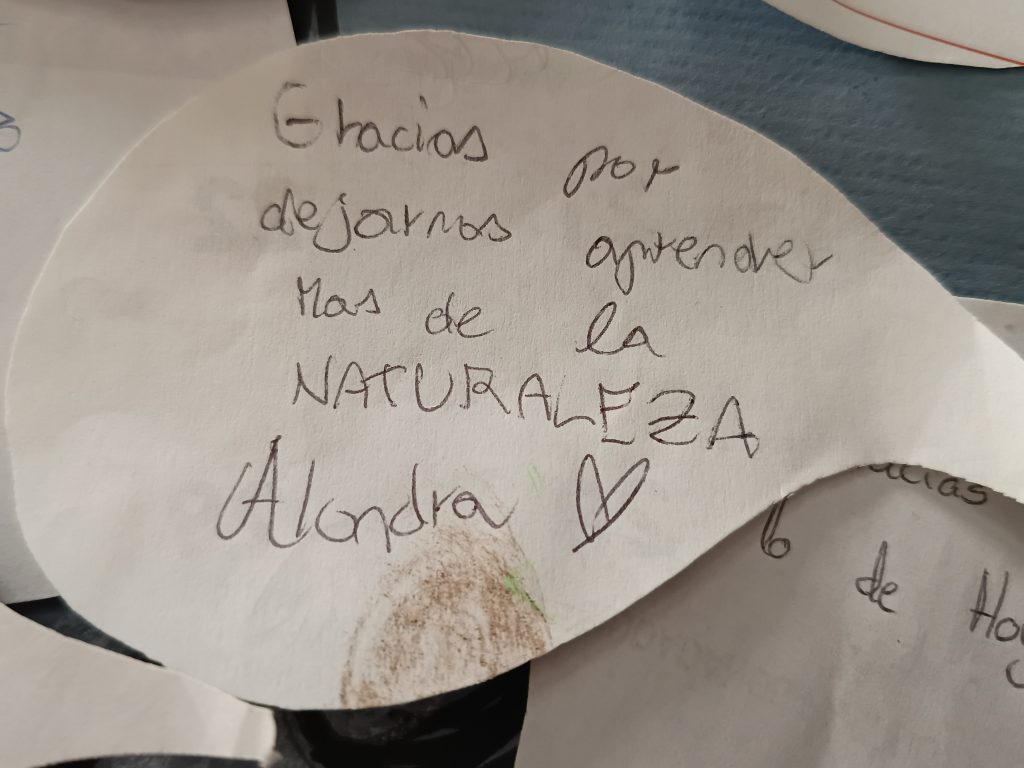 Gracias por
dejarnos aprender
Mas de la
NATURALEZA
Alondra ♡
acias
de